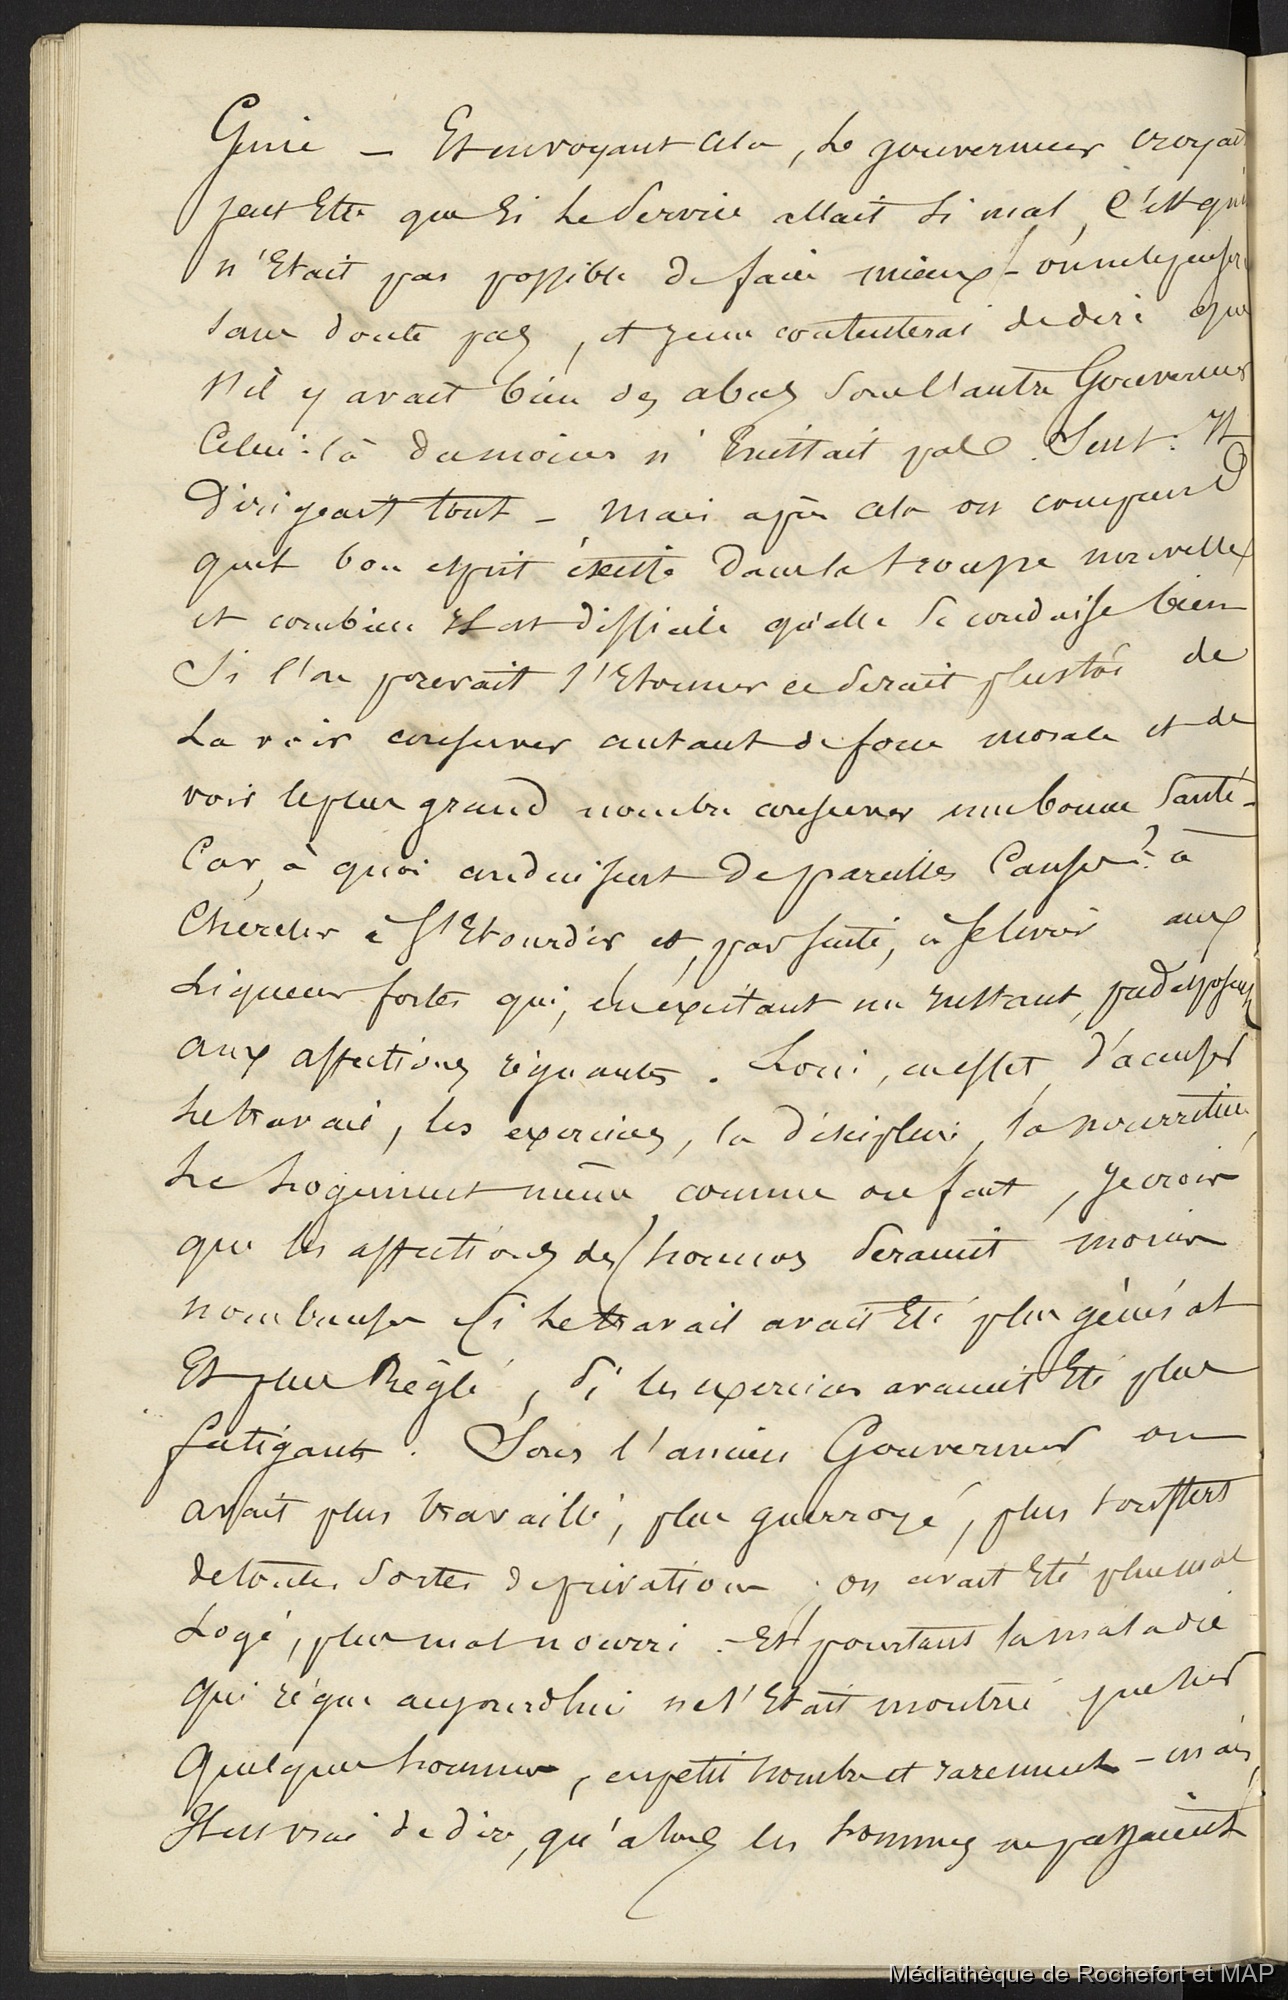 Génie — Et en voyant cela, le gouverneur croyait
peut Etre que si le service allait si mal, C'est qu'il
n'Etait pas possible de faire mieux — on ne le pensera
sans doute pas, et je me contenterai de dire que
s'il y avait bien des abus sous l'autre Gouverneur
Celui-là du moins n'Existait pas. Seul. Il
Dirigeait tout — mais après cela on comprend
quel bon esprit éxiste dans la troupe nouvelle
et combien Il est difficile qu'elle se conduise bien
Si l'on pouvait s'Etonner ce serait plustôt de
La voir conserver autant de force morale et de
voir le plus grand nombre conserver une bonne Santé —
Car, à quoi conduisent De pareilles Causes ? à
Chercher à s'Etourdir et, par suite, à se livrer aux
Liqueurs fortes qui, en éxcitant un Instant, prédisposent
aux affections régnantes. Loin, en effet, d'accuser
le travail, les exercices, la discipline, la nourriture,
le Logement même comme on fait, Je crois
que les affections des hommes seraient moins
nombreuses si le travail avait Eté plus général
Et plus Réglé, si les exercices avaient Eté plus
fatigants. Sous l'ancien Gouverneur on
avait plus travaillé, plus guerroyé, plus souffert
de toutes sortes de privations, on avait Eté plus mal
Logé, plus mal nourri. — Et pourtant la maladie
qui règne aujourd'hui ne s'Etait montrée que sur
Quelques hommes, en petit nombre et rarement — mais,
Il est vrai de dire, qu'alors les hommes ne passaient
Médiathèque de Rochefort et MAP